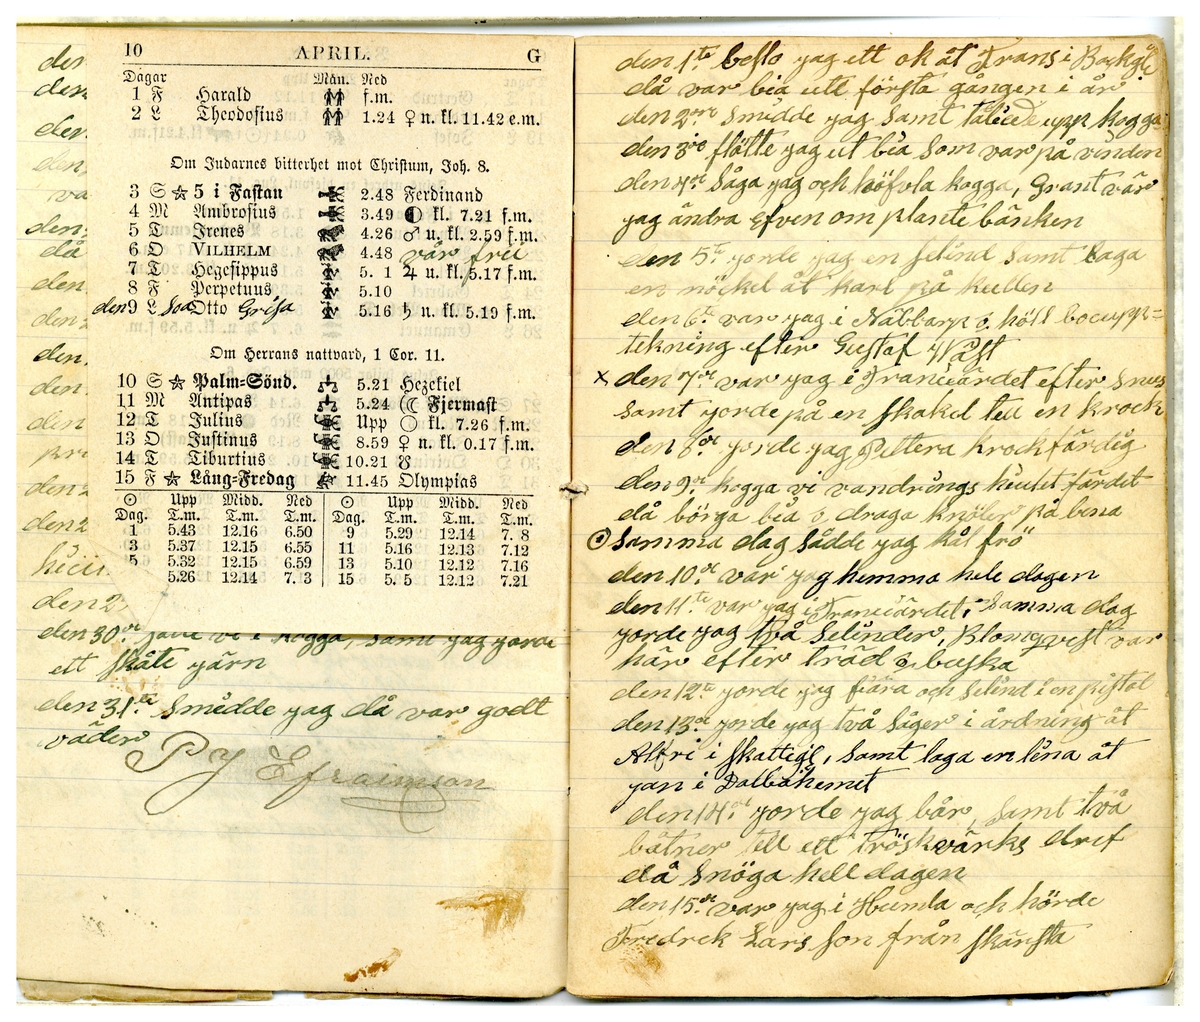 10 APRIL. G
Dagar Mån. Ned
1 F Harald f.m.
2 L Theodosius 1.24 ♀ n. kl. 11.42 e.m.
Om Judarnes bitterhet mot Christum, Joh. 8.
3 S ☆ 5 i Fastan 2.48 Ferdinand
4 M Ambrosius 3.49 ◐ kl. 7.21 f.m.
5 T Irenes 4.26 ♂ u. kl. 2.59 f.m.
6 O VILHELM 4.48 vår frú
7 T Hegesippus 5. 1 ♃ u. kl. 5.17 f.m.
8 F Perpetuus 5.10
den 9 L Soa Otto Grisa 5.16 ♄ n. kl. 5.19 f.m.
Om Herrans nattvard, 1 Cor. 11.
10 S ☆ Palm-Sönd. 5.21 Hezekiel
11 M Antipas 5.24 ☾ Fjermast
12 T Julius Upp ○ kl. 7.26 f.m.
13 O Justinus 8.59 ♀ n. kl. 0.17 f.m.
14 T Tiburtius 10.21 ☊
15 F ☆ Lång-Fredag 11.45 Olympias
☉ Upp Midd. Ned ☉ Upp Midd. Ned
Dag. T.m. T.m. T.m. Dag. T.m. T.m. T.m.
1 5.43 12.16 6.50 9 5.29 12.14 7. 8
3 5.37 12.15 6.55 11 5.16 12.13 7.12
5 5.32 12.15 6.59 13 5.10 12.12 7.16
5.26 12.14 7. 3 15 5. 5 12.12 7.21
den 30de vi i kogga, samt jag gorde
ett skåte järn
den 31te Smidde jag då var godt
väder
P J Efraimson
den 1te beslo jag ett ok åt Frans i
då var bia ute första gången i år
den 2dre Smidde jag Samt upp kogga
den 3die flötte jag ut bia Som var på vinden
den 4de Såga jag och höfvla kogga, Grant vär
jag ändra Efven om plante bänken
den 5te gorde jag en selind Samt Laga
en nöckel åt karl på kullen
den 6te var jag i Nabbarp o. höll boupp=
tekning efter Gustaf Wäst
× den 7de var jag i efter Snus
Samt gorde på en Skakel till en krock
den 8de gorde jag Pettera krockfärdig
den 9de kogga vi vandrings huset färdet
då börga bia o. draga på bena
⊙ Samma dag Sådde jag kål frö
den 10de var jag hemma hele dagen
den 11te var jag i Samma dag
gorde jag två Selinder, Blomqvest var
här efter träd o. buska
den 12te gorde jag fiära och selind i en pistol
den 13de gorde jag två Såger i årdning åt
Alfri i skattegl, Samt laga en lina åt
jan i Dalbåhemet
den 14de gorde jag bår, Samt två
båtner till ett tröskvärks dref
då Snöga hell dagen
den 15de var jag i Humla och hörde
Fredrek Lars Son från Skärsta